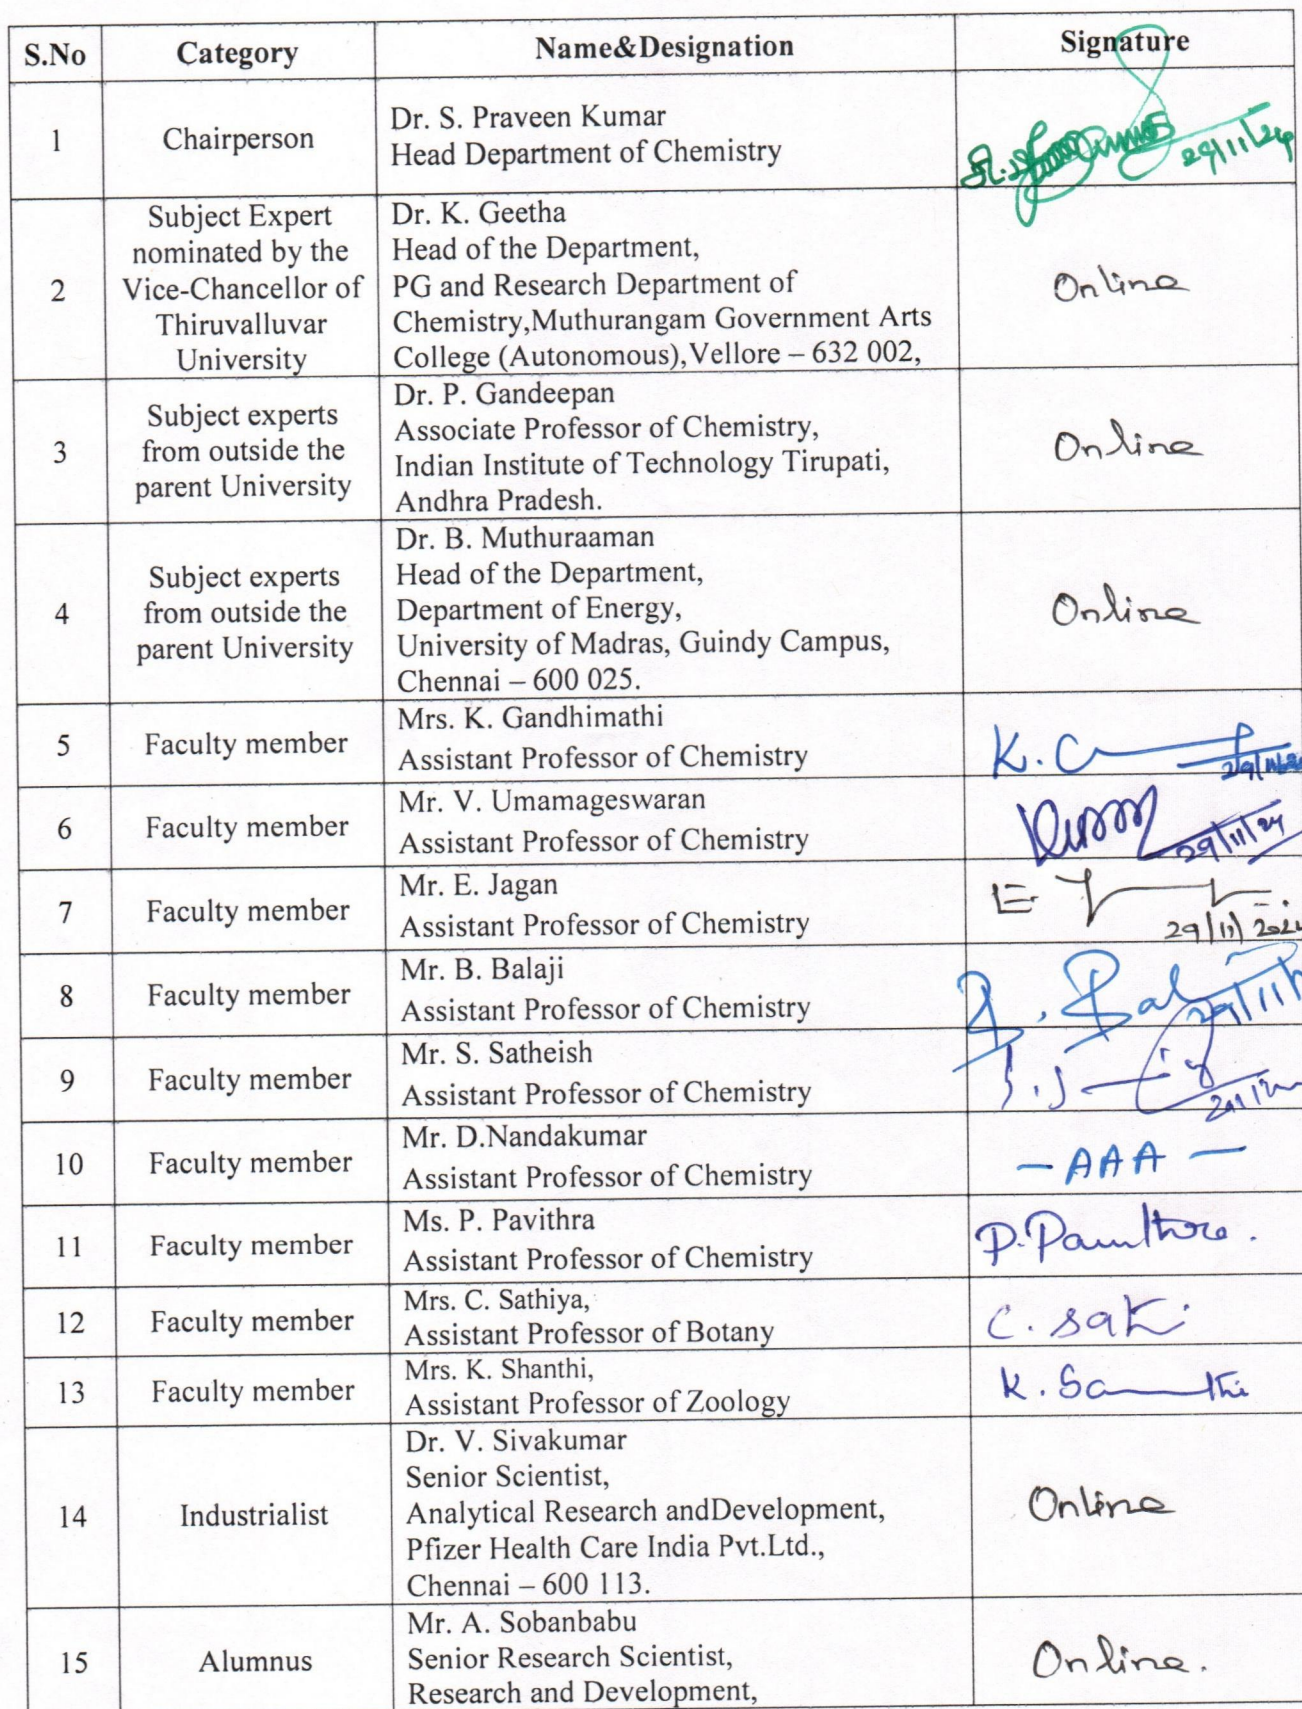 S.No Category Name&Designation Signature
1 Chairperson Dr. S. Praveen Kumar
Head Department of Chemistry
29/11/24
2 Subject Expert
nominated by the
Vice-Chancellor of
Thiruvalluvar
University
Dr. K. Geetha
Head of the Department,
PG and Research Department of
Chemistry,Muthurangam Government Arts
College (Autonomous),Vellore – 632 002,
Online
3 Subject experts
from outside the
parent University
Dr. P. Gandeepan
Associate Professor of Chemistry,
Indian Institute of Technology Tirupati,
Andhra Pradesh.
Online
4 Subject experts
from outside the
parent University
Dr. B. Muthuraaman
Head of the Department,
Department of Energy,
University of Madras, Guindy Campus,
Chennai – 600 025.
Online
5 Faculty member Mrs. K. Gandhimathi
Assistant Professor of Chemistry
6 Faculty member Mr. V. Umamageswaran
Assistant Professor of Chemistry
29/11/24
7 Faculty member Mr. E. Jagan
Assistant Professor of Chemistry
29/11/2024
8 Faculty member Mr. B. Balaji
Assistant Professor of Chemistry
9 Faculty member Mr. S. Satheish
Assistant Professor of Chemistry
10 Faculty member Mr. D.Nandakumar
Assistant Professor of Chemistry
– AAA –
11 Faculty member Ms. P. Pavithra
Assistant Professor of Chemistry
12 Faculty member Mrs. C. Sathiya,
Assistant Professor of Botany
13 Faculty member Mrs. K. Shanthi,
Assistant Professor of Zoology
14 Industrialist Dr. V. Sivakumar
Senior Scientist,
Analytical Research andDevelopment,
Pfizer Health Care India Pvt.Ltd.,
Chennai – 600 113.
Online
15 Alumnus Mr. A. Sobanbabu
Senior Research Scientist,
Research and Development,
Online.